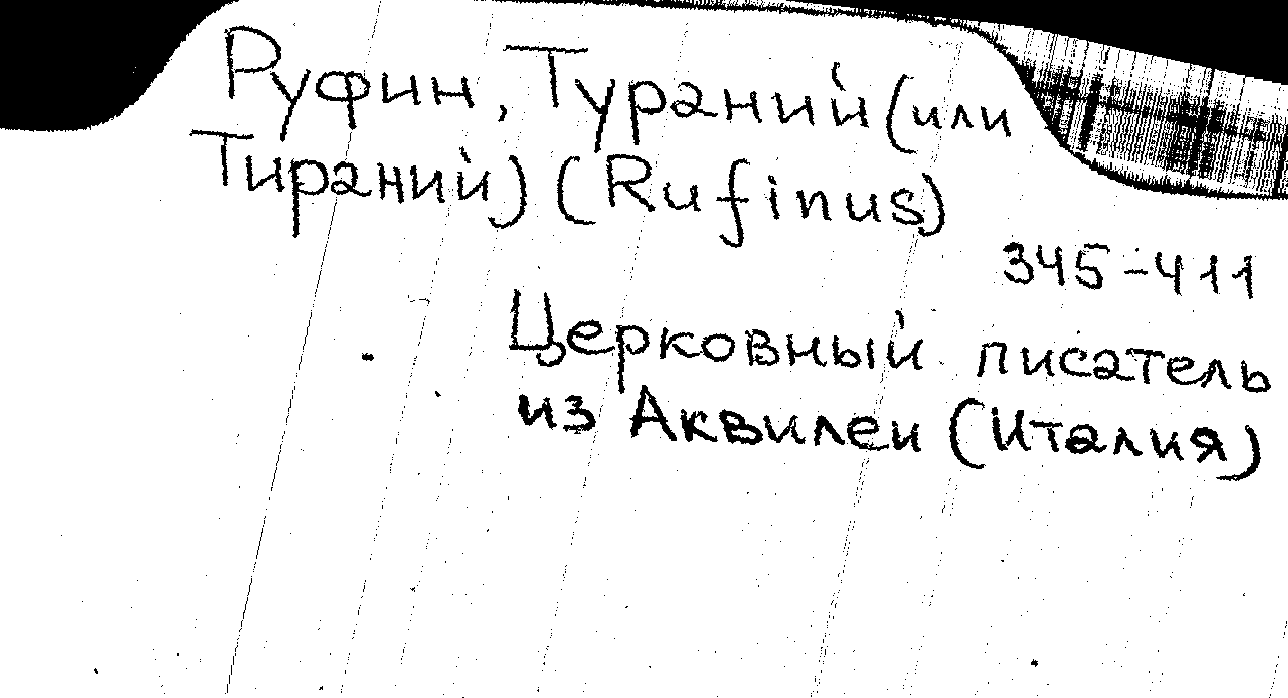 Руфин, Тураний (или
Тираний) (Rufinus)
345-411
Церковный писатель
из Аквилеи (Италия)